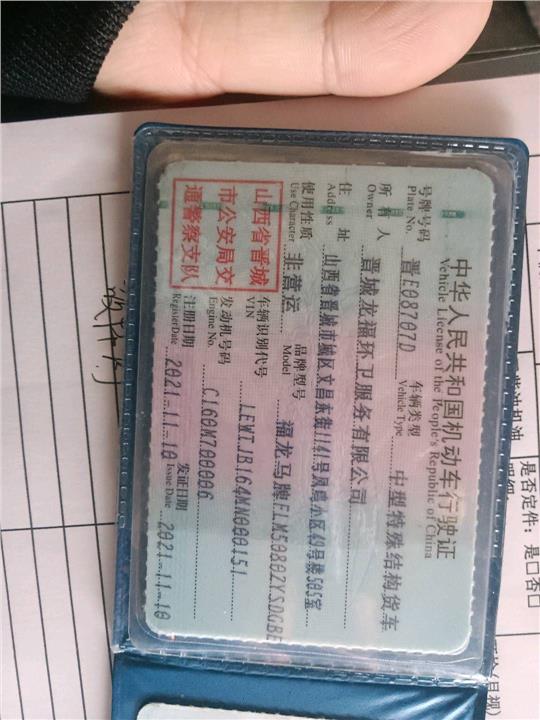 中华人民共和国机动车行驶证
Vehicle License of the People's Republic of China
号牌号码 晋E08707D 车辆类型 中型特殊结构货车
Plate No. Vehicle Type
所有人 晋城龙福环卫服务有限公司
Owner
住址 山西省晋城市城区文昌东街1141号凤鸣小区49号楼505室
Address
使用性质 非营运 品牌型号 福龙马牌FLM5080ZYSDGBE
Use Character Model
山西省晋城
市公安局交
通警察支队
车辆识别代号 LEWTJB164MN000151
VIN
发动机号码 CJ60M700006
Engine No.
注册日期 2021-11-10 发证日期 2021-11-10
Register Date Issue Date
柴油机油
是否定件：是□否□